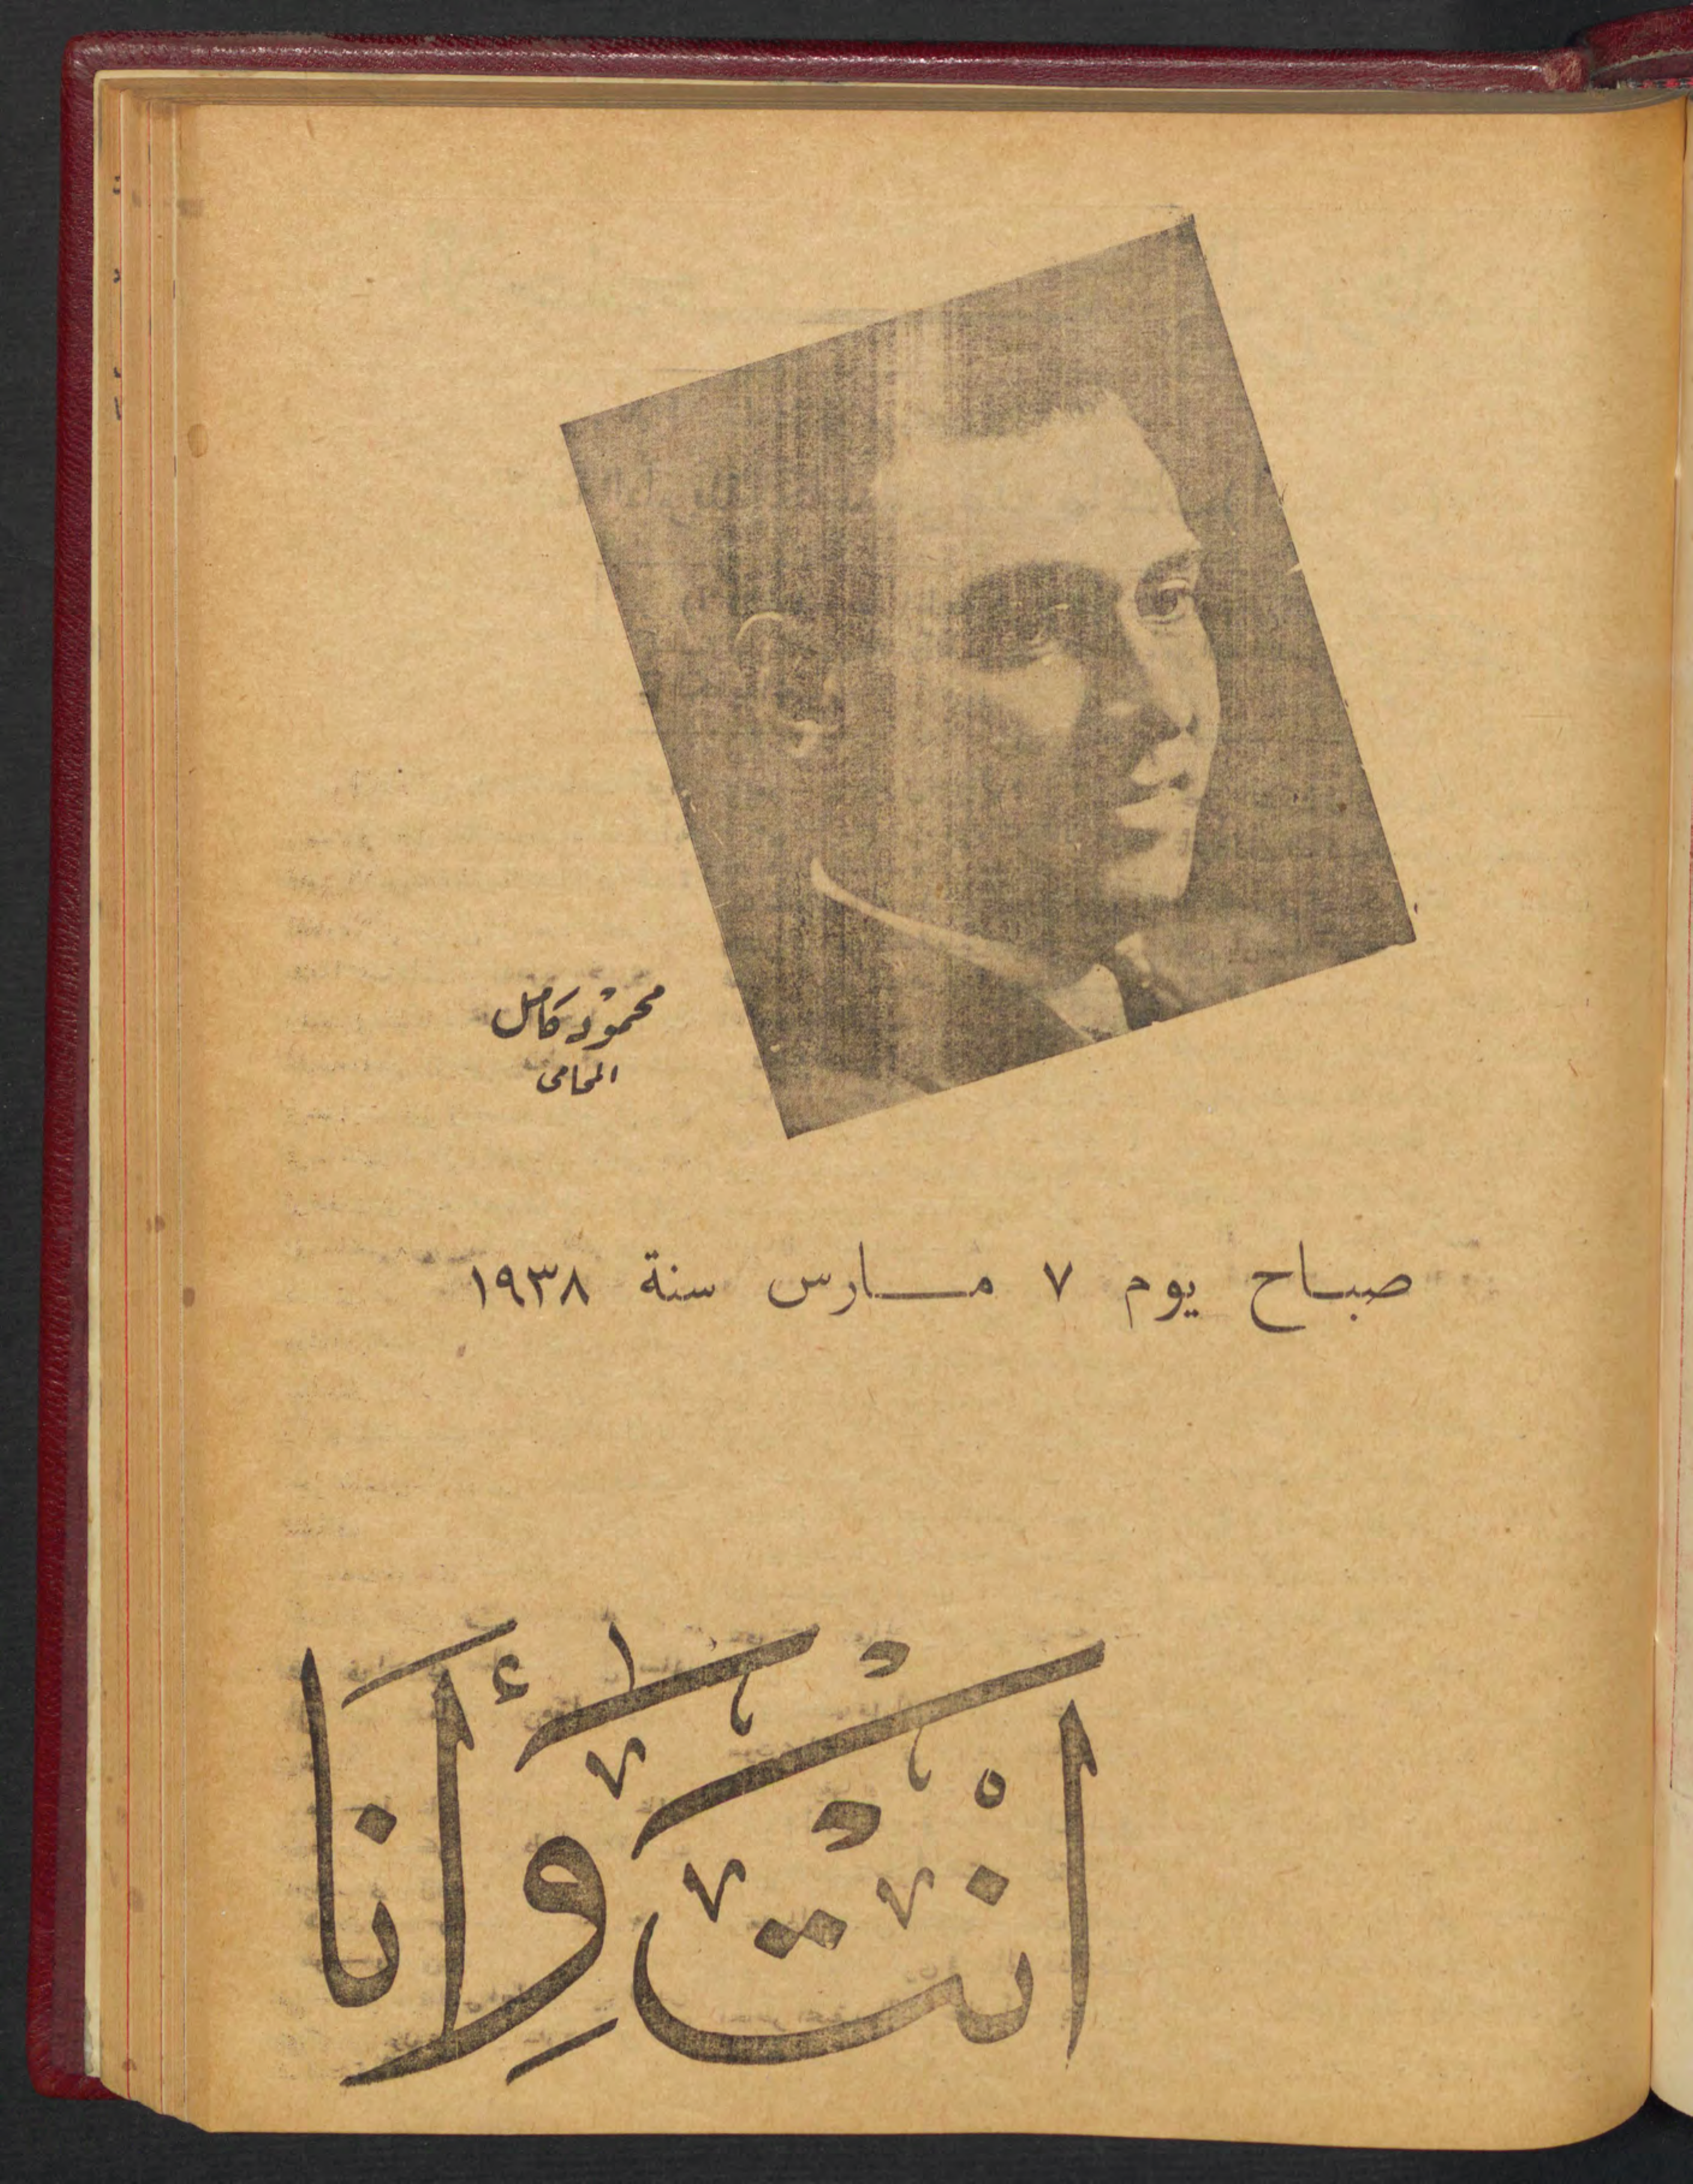 محمود كامل
المحامى
صباح يوم ٧ مارس سنة ١٩٣٨
انت وأنا